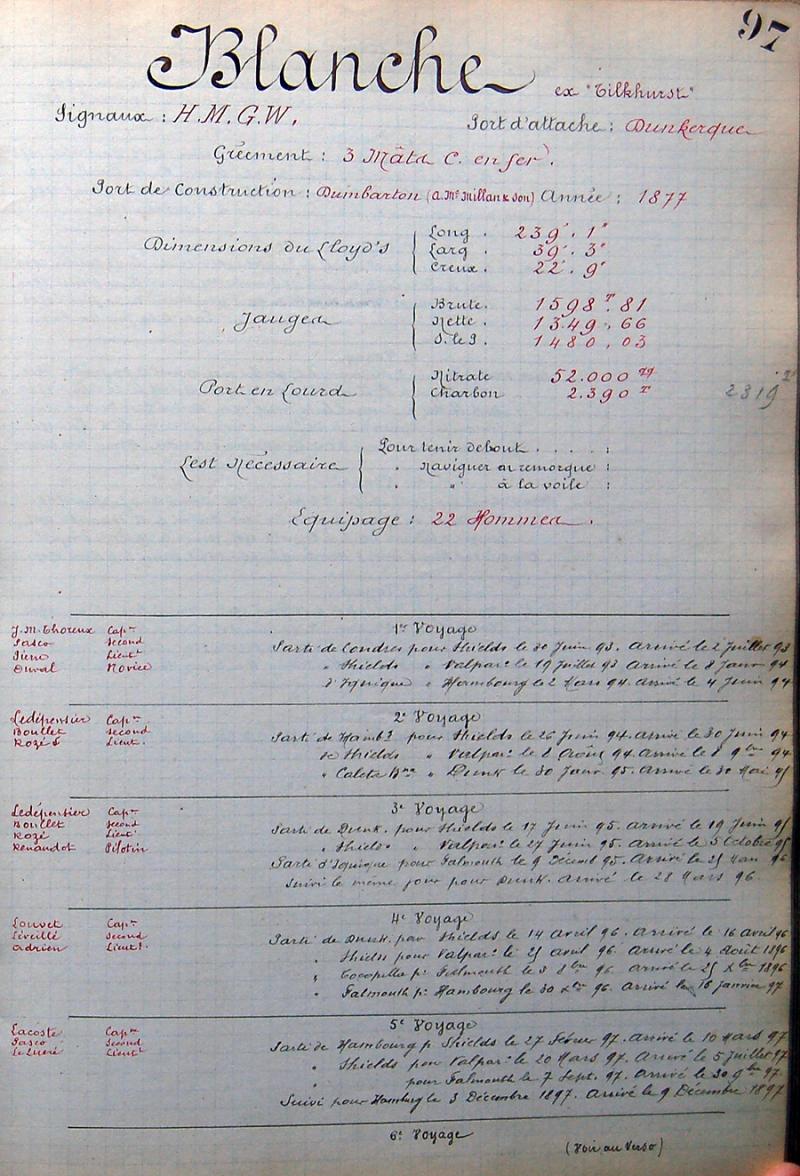 97
Blanche ex "Tilkhurst"
Signaux : H.M.G.W. Port d'attache : Dunkerque
Gréement : 3 Mâts C. en fer.
Port de Construction : Dumbarton (A. Mc Millan & Son) Année : 1877
Dimensions du Lloyd's
Long. 239'. 1"
Larg. 39'. 3"
Creux. 22'. 9"
Jauges
Brute. 1598 T. 81
Nette. 1349, 66
S. le P. 1480, 03
Port en Lourd
Nitrate 52.000 qq
Charbon 2.390 T 2319 T
Lest Nécessaire
Pour tenir debout . . . . :
" Naviguer en remorque :
" " à la voile :
Equipage : 22 Hommes.
1er Voyage
J.M. Thoreux Capne
Pasco Second
Lieutt
Duval Novice
Parti de Londres pour Shields le 30 Juin 93. Arrivé le 2 Juillet 93
" Shields " Valparo le 19 Juillet 93 Arrivé le 8 Janv 94
d'Iquique " Hambourg le 2 Mars 94. Arrivé le 4 Juin 94
2e Voyage
Ledépensier Capne
Boullet Second
Rozé Lieut.
Parti de Hambg pour Shields le 26 Juin 94. Arrivé le 30 Juin 94
de Shields " Valparo le 2 Août 94. Arrivé le 8 9bre 94
" Caleta Bna " Dunk le 30 Janv 95. Arrivé le 30 Mai 95
3e Voyage
Ledépensier Capne
Boullet Second
Rozé Lieutt
Renaudot Pilotin
Parti de Dunk. pour Shields le 17 Juin 95. Arrivé le 19 Juin 95
" Shields " Valparo le 27 Juin 95. Arrivé le 5 Octobre 95
Parti d'Iquique pour Falmouth le 9 Décemb 95. Arrivé le 25 Mars 96
Suivi le même jour pour Dunk. Arrivé le 28 Mars 96.
4e Voyage
Louvet Capne
Léveillé Second
Adrien Lieutt.
Parti de Dunk. pour Shields le 14 Avril 96. Arrivé le 16 Avril 96
" Shields pour Valparo le 25 Avril 96. Arrivé le 4 Août 1896
" Tocopilla pr Falmouth le 3 8bre 96. Arrivé le 25 Xbre 1896
" Falmouth pr Hambourg le 30 Xbre 96. Arrivé le 16 Janvier 97
5e Voyage
Lacoste Capne
Pasco Second
Lieutt
Parti de Hambourg pr Shields le 27 Février 97. Arrivé le 10 Mars 97
" Shields pour Valparo le 20 Mars 97. Arrivé le 5 Juillet 97
" pour Falmouth le 7 Sept. 97. Arrivé le 30 9bre 97.
Suivi pour Hamburg le 3 Décembre 1897. Arrivé le 9 Décembre 1897
6e Voyage
(Voir au Verso)